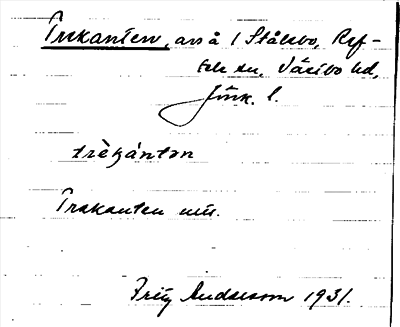 Trekanten, avs å 1 Stålsbo, Ref-
tele sn, Västbo hd,
Jönk. l.
trèkánten
Trekanten
Fritz Andersson 1931.